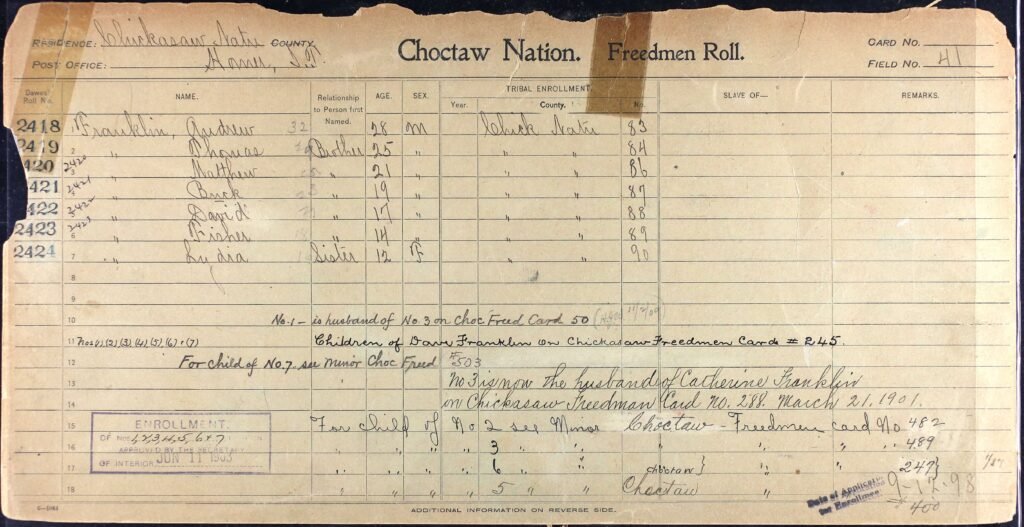 RESIDENCE: Chickasaw Natn COUNTY.
POST OFFICE: Homer, I.T.
Choctaw Nation. Freedmen Roll.
CARD NO.
FIELD NO. 41
Dawes' Roll No.
NAME.
Relationship to Person first Named.
AGE.
SEX.
TRIBAL ENROLLMENT
Year. County. No.
SLAVE OF—
REMARKS.
2418 1 Franklin, Andrew 32 28 M Chick Natn 83
2419 2 " Thomas Brother 25 " " " 84
2420 3 " Matthew " 21 " " " 86
2421 " Buck " 19 " " " 87
2422 " David " 17 " " " 88
2423 6 " Fisher " 14 " " " 89
2424 7 " Lydia Sister 12 F " " 90
8
9
10 No. 1 – is husband of No. 3 on Choc. Freed Card 50
11 Nos (1) (2) (3) (4), (5), (6) + (7) Children of Dave Franklin on Chickasaw Freedmen Card # 245.
12 For child of No. 7. see minor Choc Freed #503
13 No 3 is now the husband of Catherine Franklin
14 on Chickasaw Freedman Card No. 288. March 21, 1901.
15 For child of No 2 see Minor Choctaw - Freedmen card No 482
16 " " " 3 " " " " " 489
17 " " " 6 " " Choctaw } " " 247}
18 " " " 5 " " Choctaw " # 400
ENROLLMENT.
OF NOS 1,2,3,4,5,6+7
APPROVED BY THE SECRETARY
OF INTERIOR JUN 11 1903
Date of Application for Enrollment
9-12-98
ADDITIONAL INFORMATION ON REVERSE SIDE.